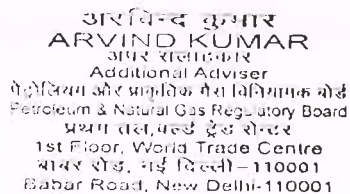 अरविन्द कुमार
ARVIND KUMAR
अपर सलाहकार
Additional Adviser
पेट्रोलियम और प्राकृतिक गैस विनियामक बोर्ड
Petroleum & Natural Gas Regulatory Board
प्रथम तल, वर्ल्ड ट्रेड सेन्टर
1st Floor, World Trade Centre
बाबर रोड, नई दिल्ली-110001
Babar Road, New Delhi-110001